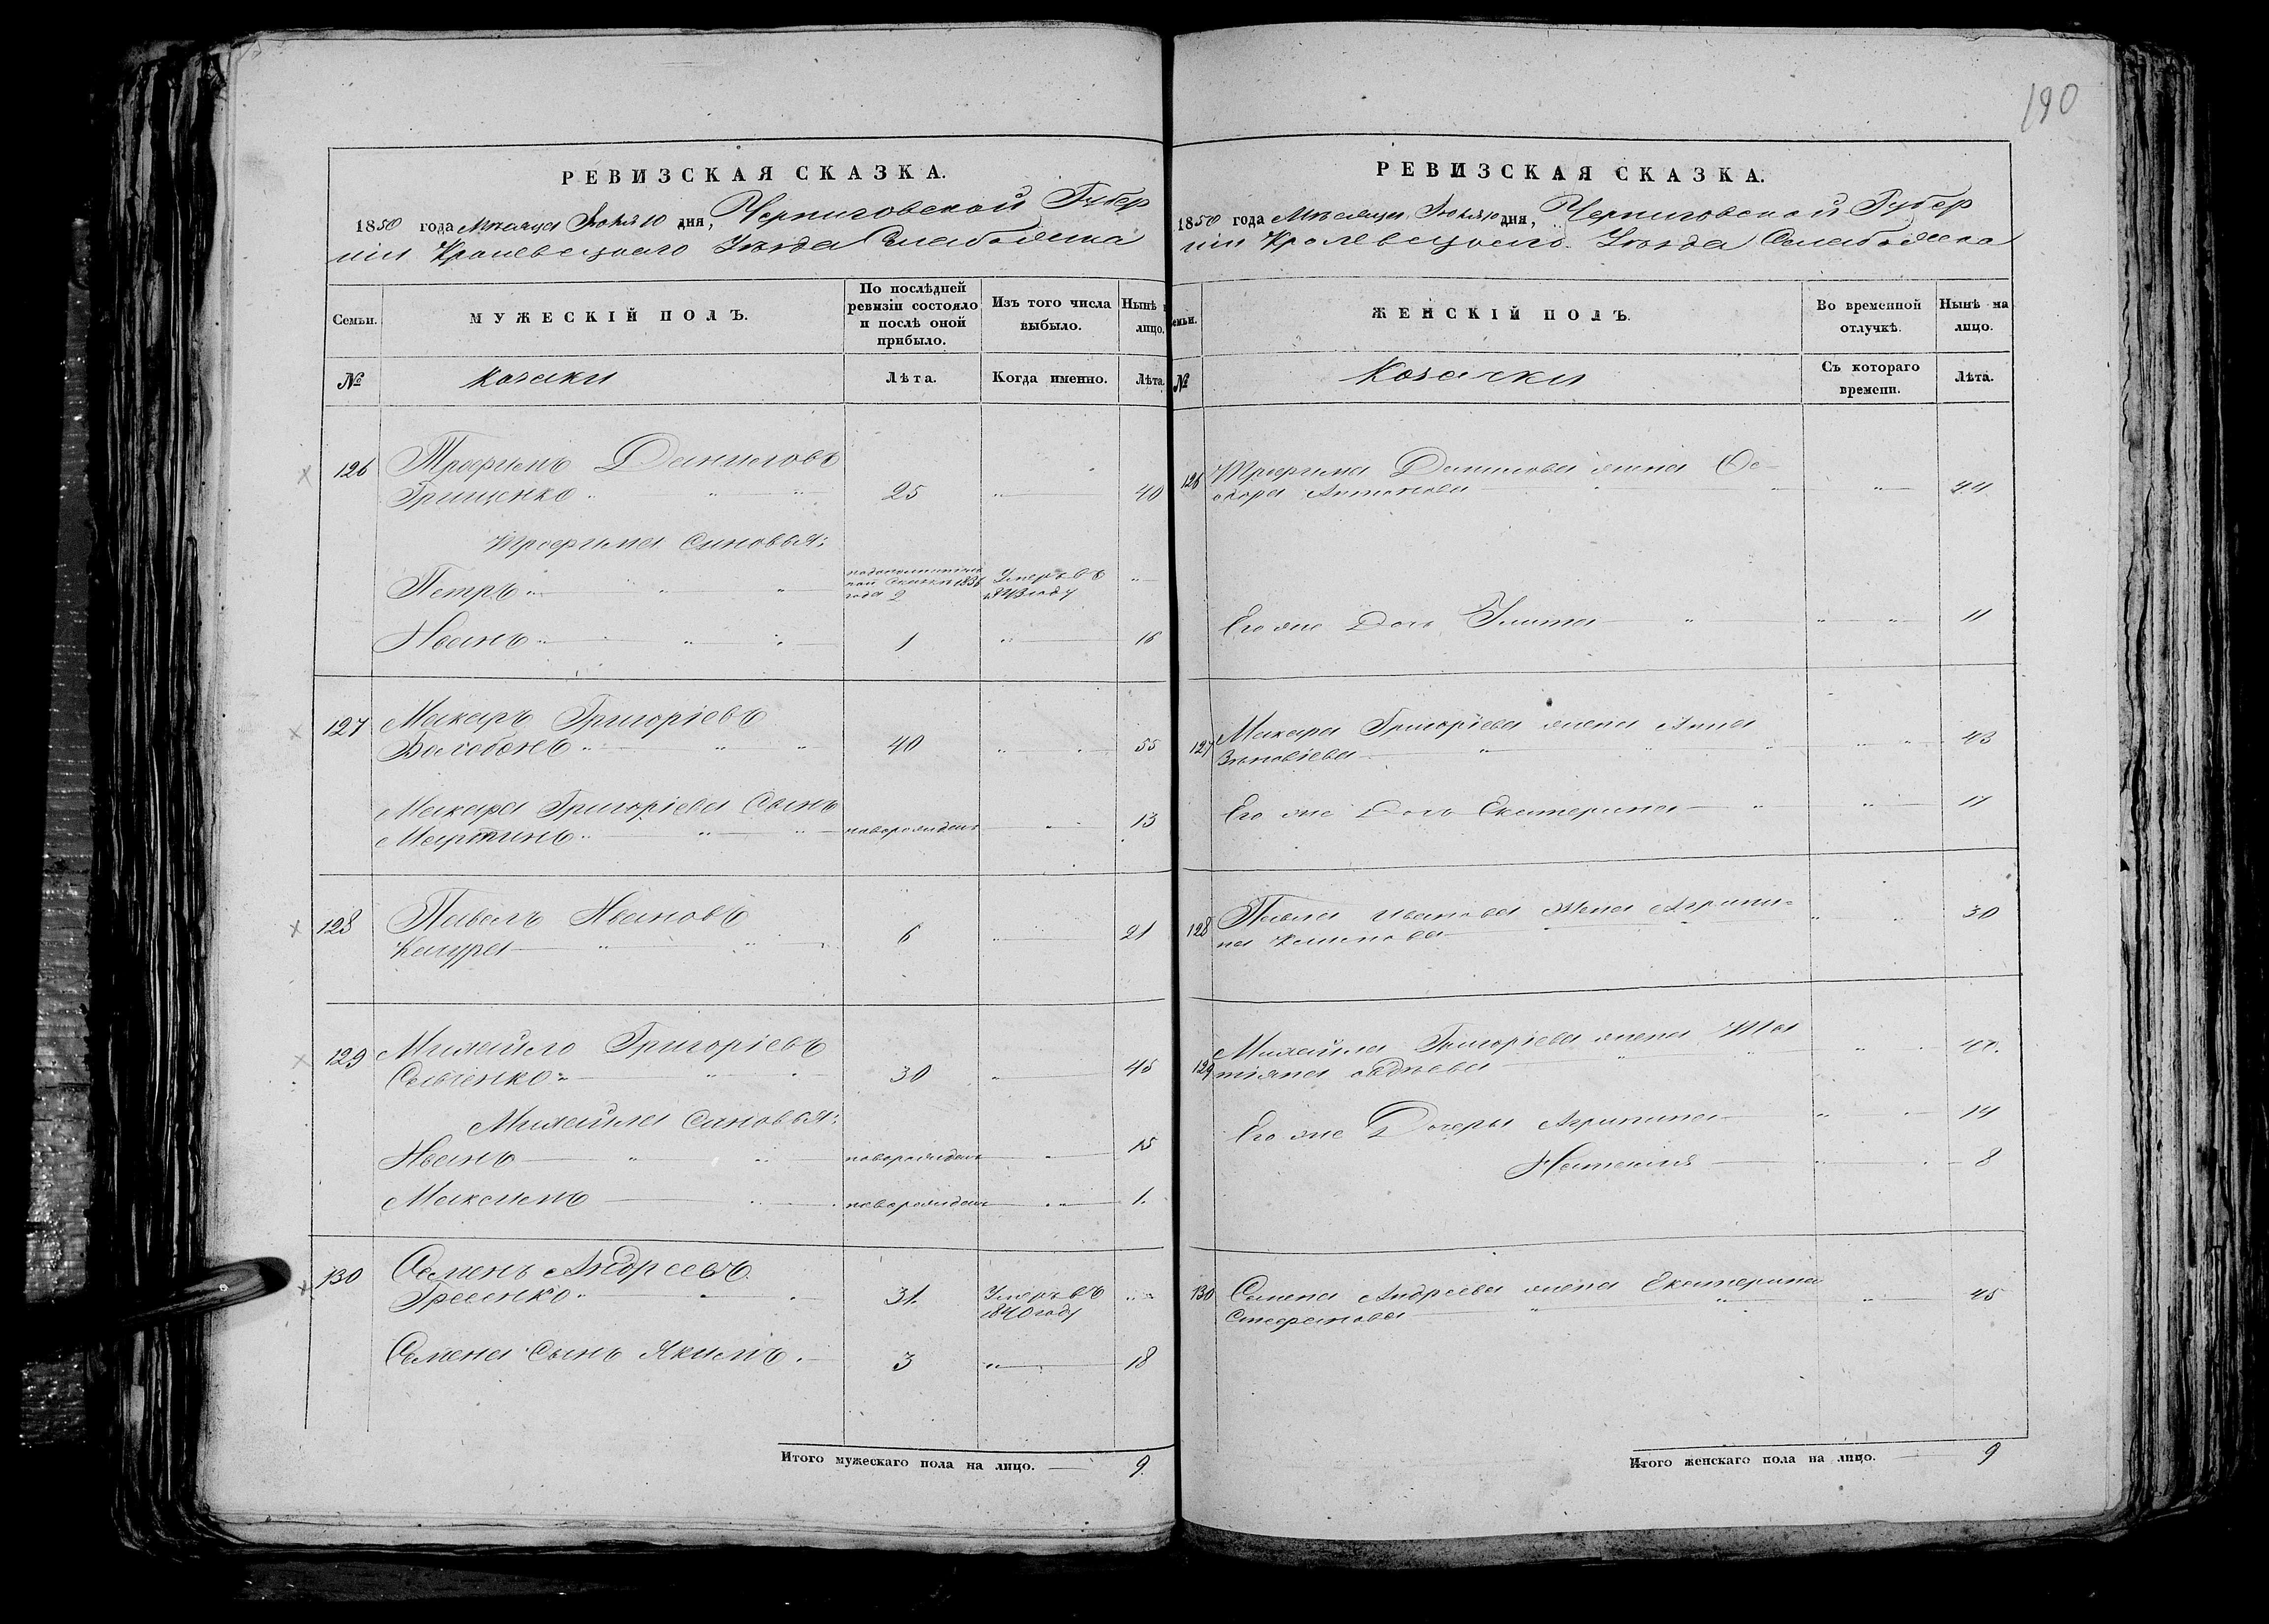 190
РЕВИЗСКАЯ СКАЗКА.
1850 года Месяца Июня 10 дня, Черниговской Губер
ніи Кролевецкаго Уезда
Семьи.
МУЖЕСКІЙ ПОЛЪ.
По послѣдней ревизіи состояло и послѣ оной прибыло.
Изъ того числа выбыло.
Нынѣ лицо.
№
козаки
Лѣта.
Когда именно.
Лѣта.
126 Трофимъ Даниловъ
Грищенко 25 40
Трофима Сыновья:
Петръ 2 Умеръ въ 1843 году
Иванъ 1 16
127 Макаръ Григоріевъ
40 55
Макара Григоріева Сынъ
Мартинъ новорожденъ 13
128 Павелъ Ивановъ
6 21
129 Михайло Григоріевъ
30 45
Михайла Сыновья:
Иванъ новорожденъ 15
Максимъ новорожденъ 1.
130 Семенъ Андреевъ
31. Умеръ въ
1840 году
Семена Сынъ Якимъ. 3 18
Итого мужескаго пола на лицо. 9.
РЕВИЗСКАЯ СКАЗКА.
1850 года Месяца Июня 10 дня, Черниговской Губер
ніи Кролевецкаго Уезда
ЖЕНСКІЙ ПОЛЪ.
Во временной отлучкѣ.
Нынѣ на лицо.
№
Козачки
Съ котораго времени.
Лѣта.
126 Трофима Данилова жена Фе-
одора Антонова 44
Его же Дочь Улита 11
127 Макара Григоріева жена Анна
Зѣновіева 43
Его же Дочь Екатерина 17
128 Павла Иванова Жена Агрипи-
на 30
129 Михайла Григоріева жена Та
тіяна
Его же Дочеры Агрипина 14
Наталія 8
130 Семена Андреева жена Екатерина
Стефанова 45
Итого женскаго пола на лицо. 9